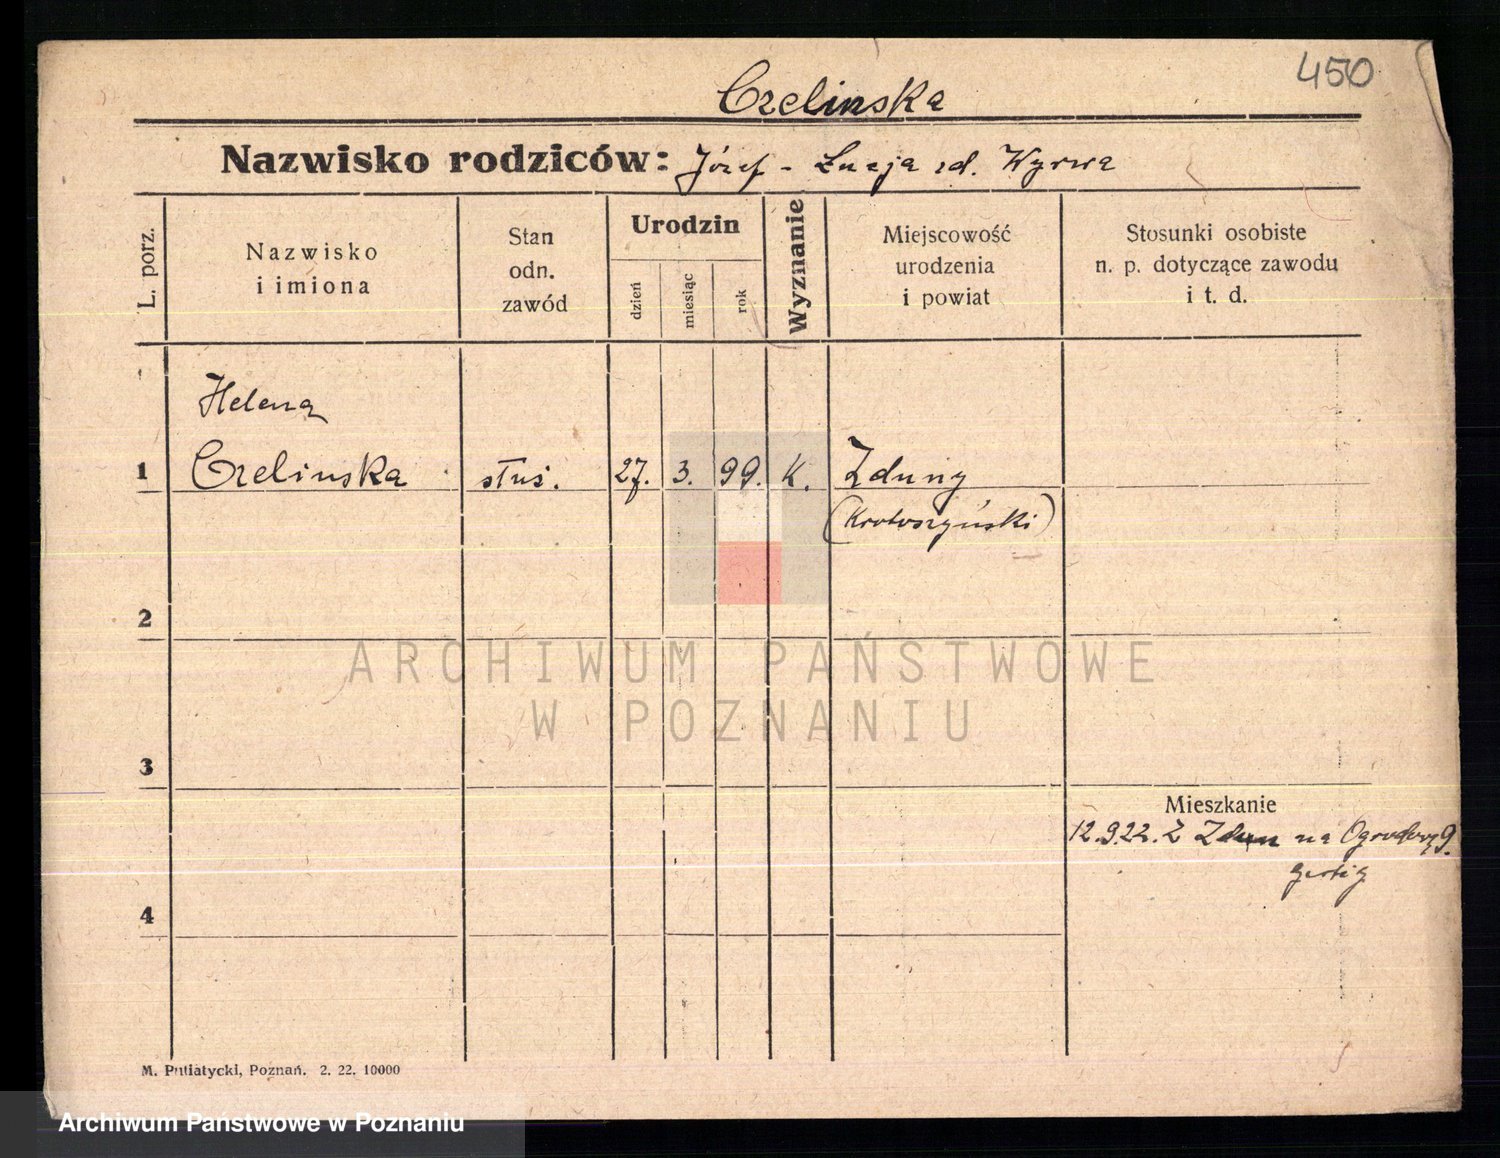 450
Czelinska
Nazwisko rodziców: Józef - Łucja zd. Wyrwa
L. porz.
Nazwisko
i imiona
Stan
odn.
zawód
Urodzin
dzień
miesiąc
rok
Wyznanie
Miejscowość
urodzenia
i powiat
Stosunki osobiste
n. p. dotyczące zawodu
i t. d.
Helena
1 Czelinska służ. 27. 3. 99. K. Zduny
(Krotoszyński)
2
ARCHIWUM PAŃSTWOWE
W POZNANIU
3
Mieszkanie
12.9.22. Z Zdun na Ogrodowy 9.
4
M. Putiatycki, Poznań. 2. 22. 10000
Archiwum Państwowe w Poznaniu